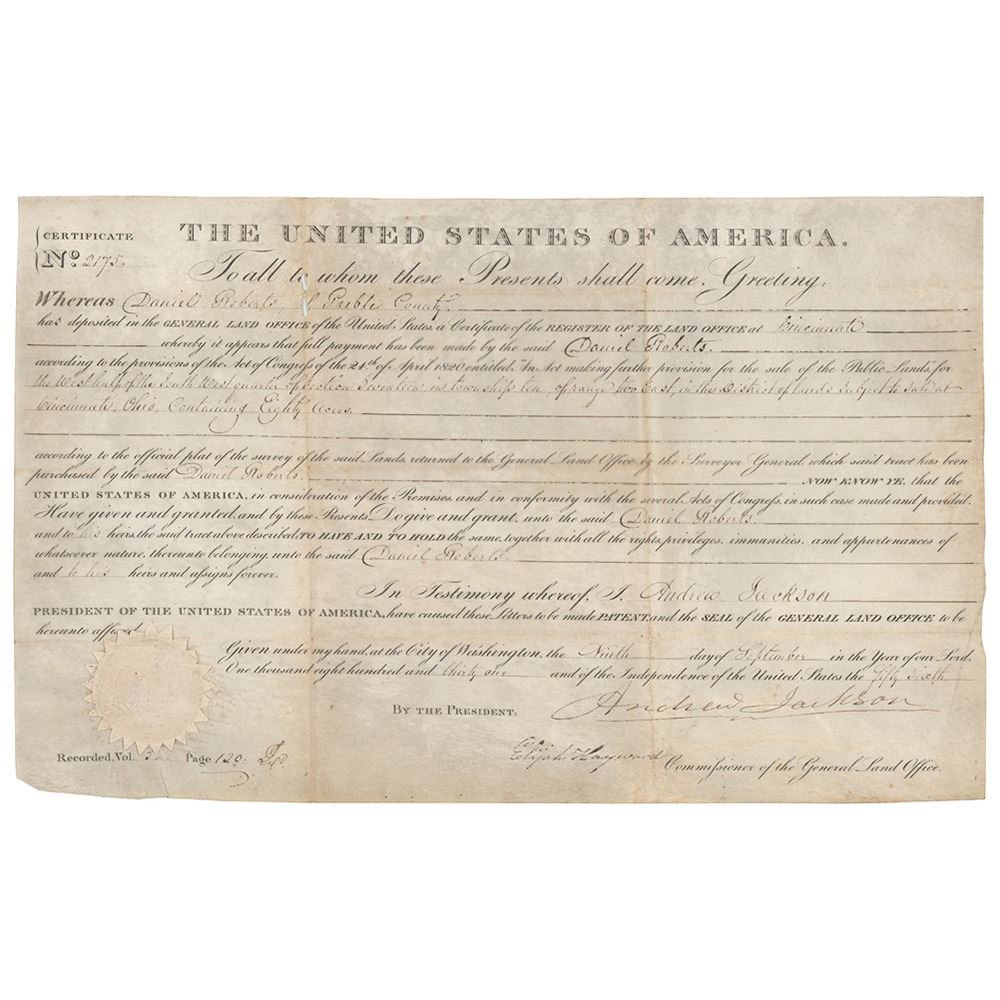 CERTIFICATE
No. 2175
THE UNITED STATES OF AMERICA.
To all to whom these Presents shall come, Greeting:
Whereas Daniel Roberts, of Preble County.
has deposited in the GENERAL LAND OFFICE of the United States, a Certificate of the REGISTER OF THE LAND OFFICE at Cincinnati
whereby it appears that full payment has been made by the said Daniel Roberts.
according to the provisions of the Act of Congress of the 24th of April 1820 entitled "An Act making further provision for the sale of the Public Lands," for
the West half of the South West quarter of Section Seventeen in township ten, of range two East, in the District of lands Subject to Sale at
Cincinnati, Ohio, Containing Eighty Acres
according to the official plat of the survey of the said Lands, returned to the General Land Office by the Surveyor General, which said tract has been
purchased by the said Daniel Roberts NOW KNOW YE, that the
UNITED STATES OF AMERICA, in consideration of the Premises, and in conformity with the several Acts of Congress, in such case made and provided,
Have given and granted, and by these Presents Do give and grant, unto the said Daniel Roberts.
and to his heirs, the said tract above described, TO HAVE AND TO HOLD the same, together with all the rights, privileges, immunities, and appurtenances of
whatsoever nature, thereunto belonging, unto the said Daniel Roberts
and to his heirs and assigns forever.
In Testimony whereof, I, Andrew Jackson
PRESIDENT OF THE UNITED STATES OF AMERICA, have caused these Letters to be made PATENT, and the SEAL of the GENERAL LAND OFFICE to be
hereunto affixed.
Given under my hand, at the City of Washington, the Ninth day of September in the Year of our Lord
One thousand eight hundred and thirty one and of the Independence of the United States the fifty sixth
BY THE PRESIDENT: Andrew Jackson
Elijah Hayward Commissioner of the General Land Office.
Recorded, Vol. Page 120.